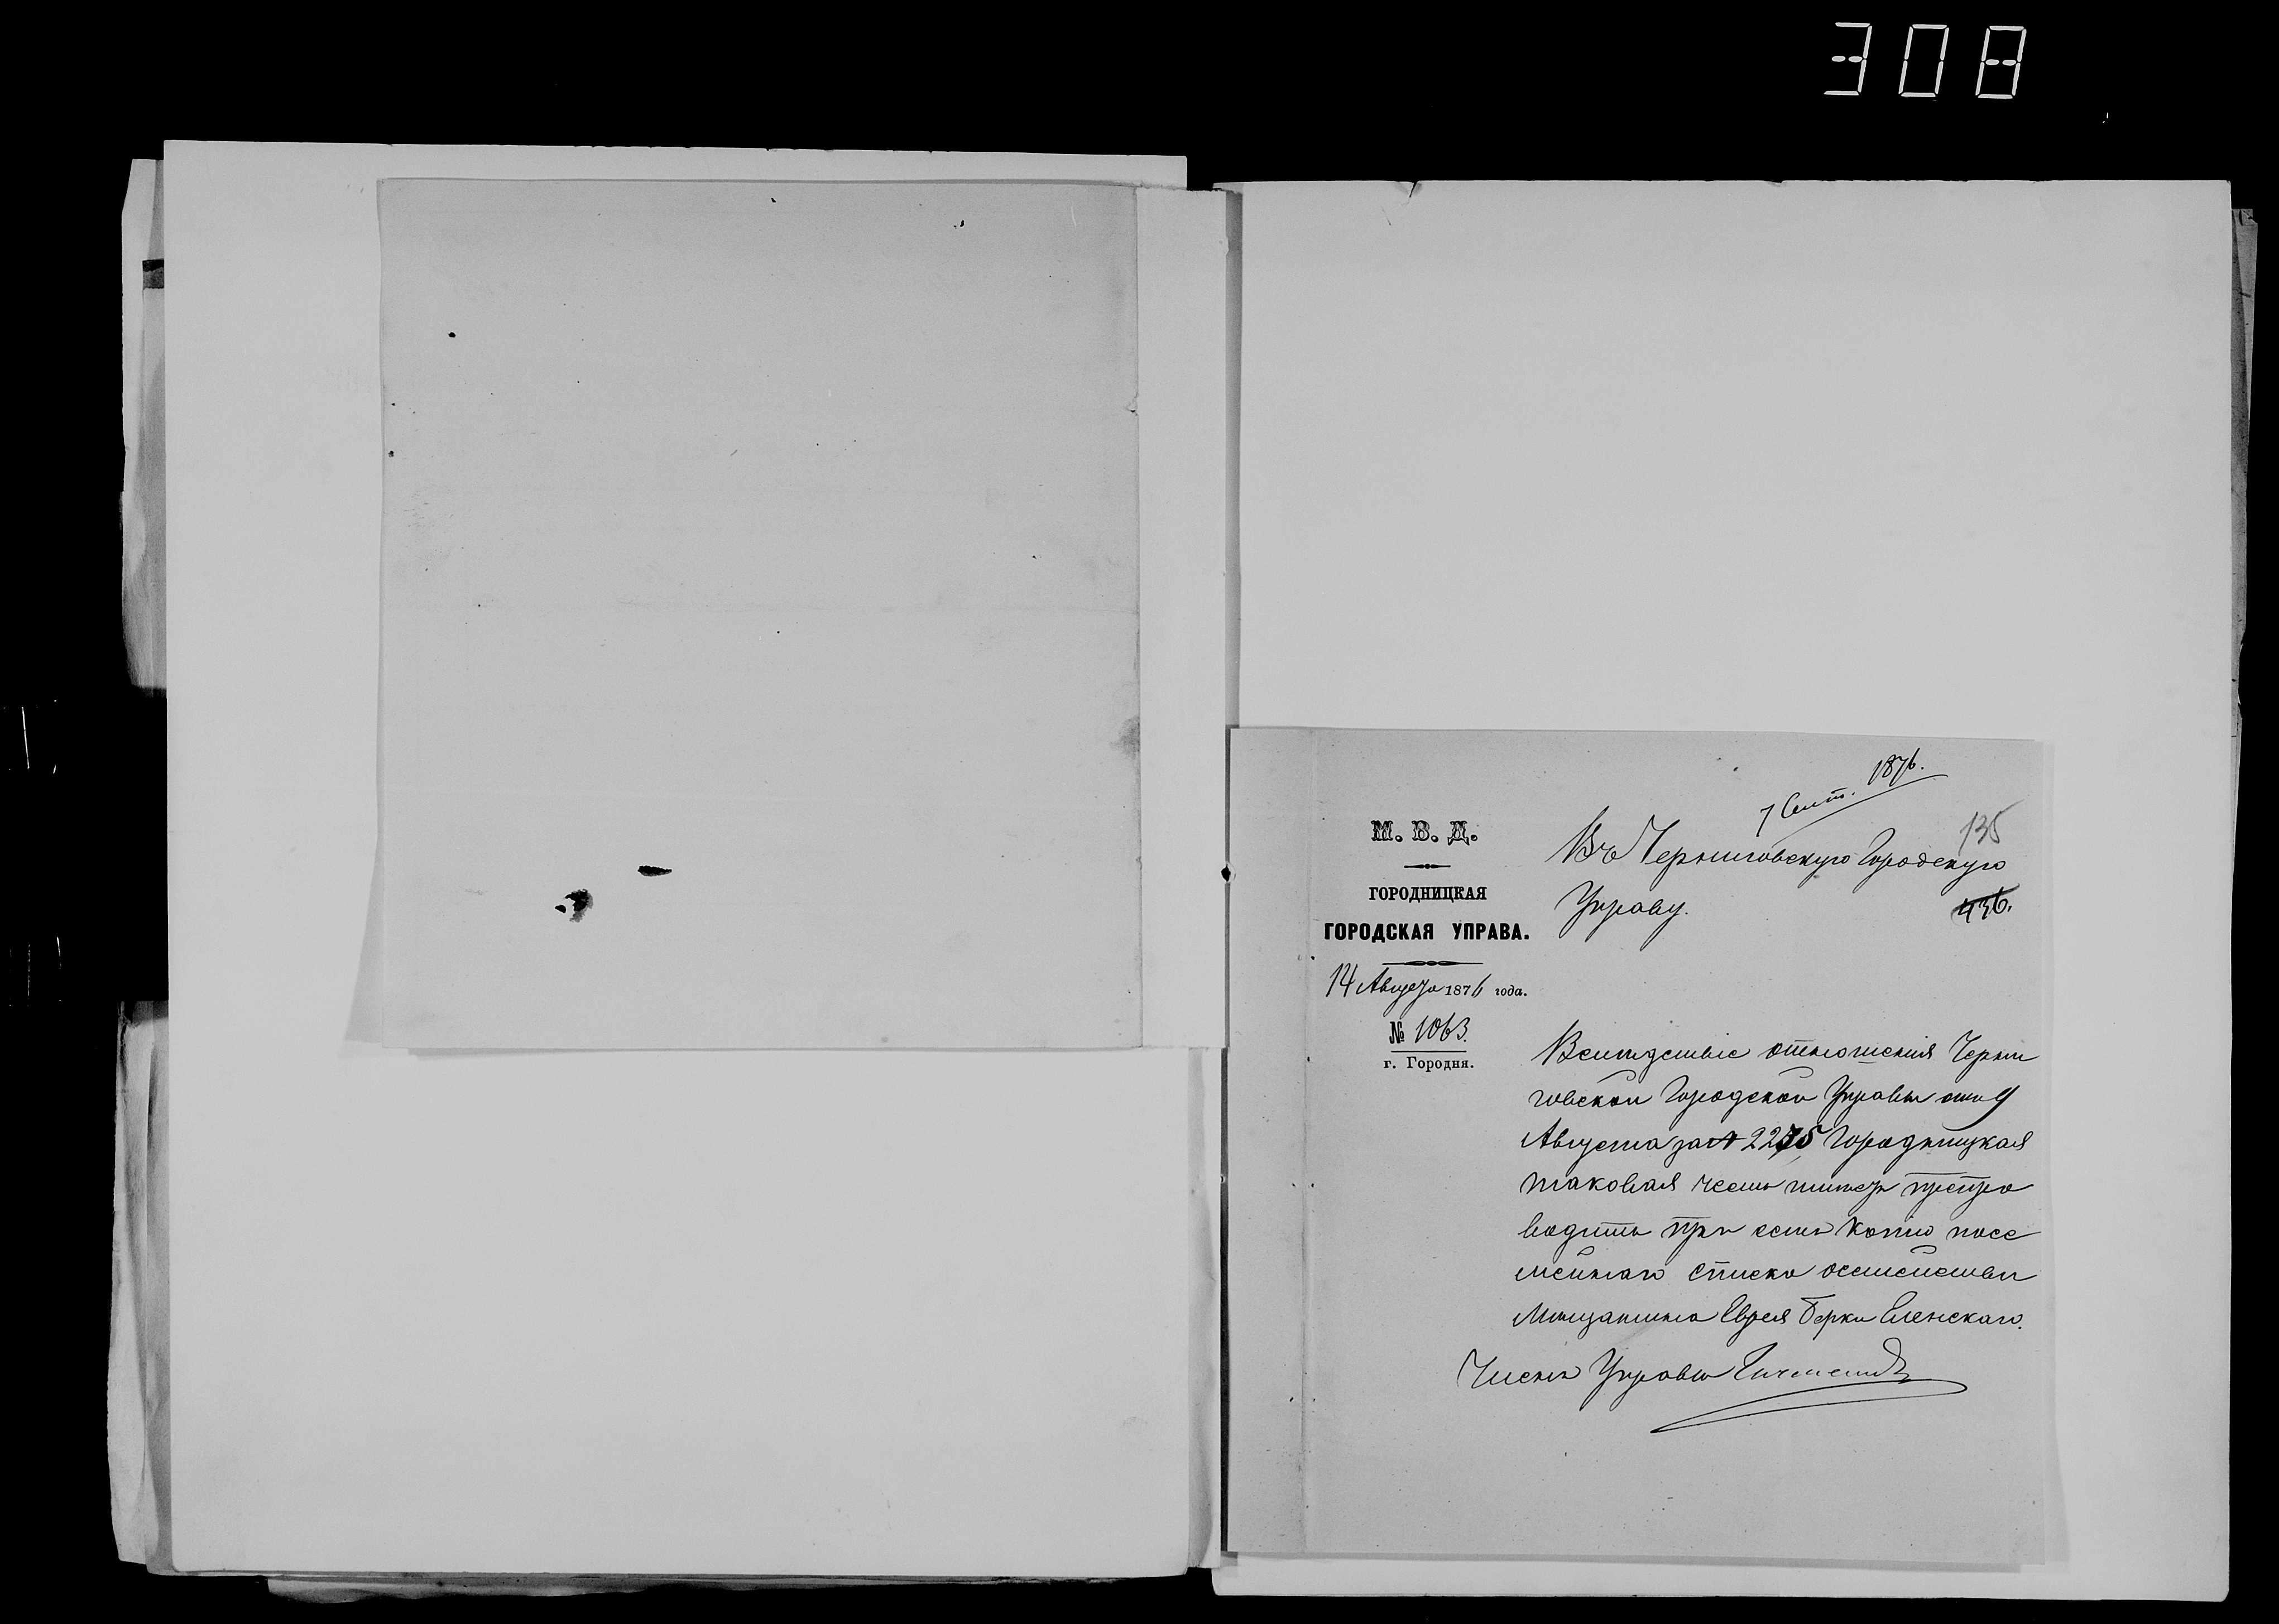 308
7 Сент. 1876.
135
М. В. Д.
ГОРОДНИЦКАЯ
ГОРОДСКАЯ УПРАВА.
14 Августа 1876 года.
№ 1063.
г. Городня.
Въ Черниговскую Городскую
Управу.
436.
Вслѣдствіе отношенія Черни
говской Городской Управы отъ 9
Августа за № 2275 Городницкая
таковая честь имѣетъ препро
водить при семъ копію посе
мейнаго списка о семействѣ
Мѣщанина Еврея Берки Сленскаго.
Членъ Управы